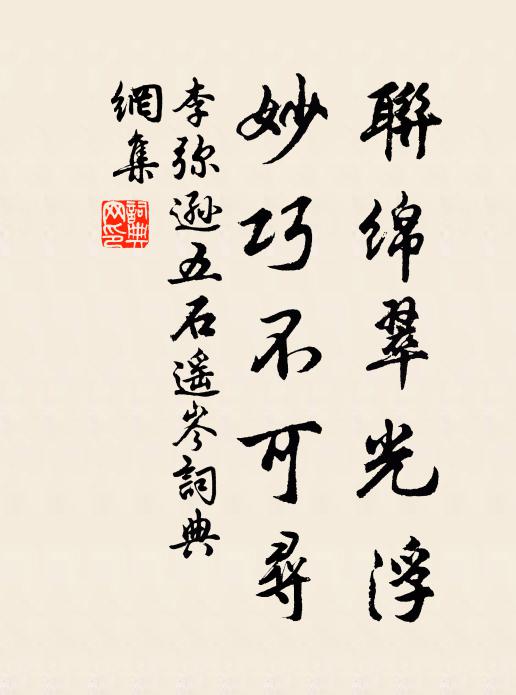 聯綿翠光浮
妙巧不可尋
李弥遜五石遥岑詞典
網集
詞典網印